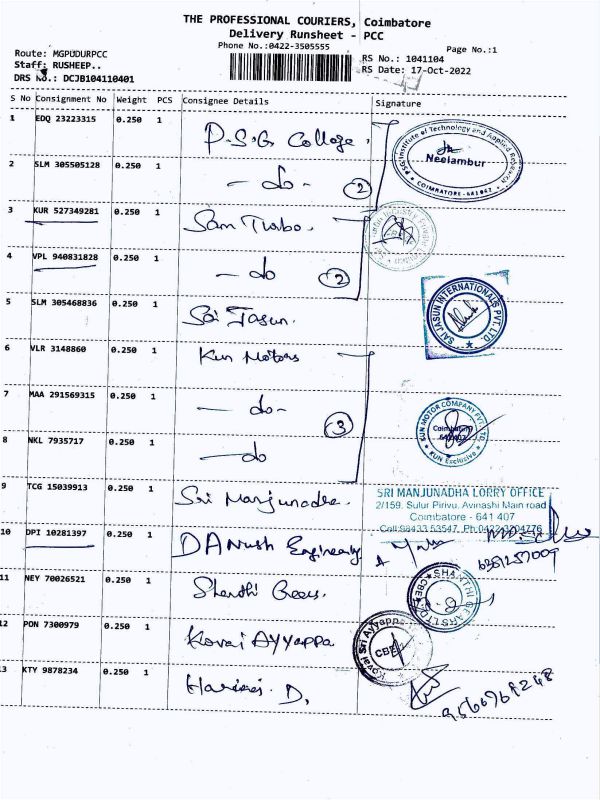 THE PROFESSIONAL COURIERS, Coimbatore
Delivery Runsheet - PCC
Phone No.:0422-3505555
Page No.:1
Route: MGPUDURPCC
RS No.: 1041104
Staff: RUSHEEP..
RS Date: 17-Oct-2022
DRS No.: DCJB104110401
S No Consignment No Weight PCS Consignee Details Signature
1 EDQ 23223315 0.250 1 P.S.G College.
PSG Institute of Technology and Applied Research
Neelambur
COIMBATORE-641062
2 SLM 305505128 0.250 1 - do - (2)
3 KUR 527349281 0.250 1 Sam Turbo.
4 VPL 940831828 0.250 1 - do (2)
5 SLM 305468836 0.250 1 Sai Jasun.
SAI JASUN INTERNATIONALS PVT. LTD.
6 VLR 3148860 0.250 1 Kun Motors
7 MAA 291569315 0.250 1 - do - (3)
KUN MOTOR COMPANY PVT. LTD.
Coimbatore
KUN Exclusive
8 NKL 7935717 0.250 1 - do
9 TCG 15039913 0.250 1 Sri Manjunadha.
SRI MANJUNADHA LORRY OFFICE
2/159, Sulur Pirivu, Avinashi Main road
Coimbatore - 641 407
Cell:98433 53547, Ph:0422-3204776
10 DPI 10281397 0.250 1 DANush Engineering
6381257009
11 NEY 70026521 0.250 1 Shanthi Gears.
12 PON 7300979 0.250 1 Kovai AYYappa
Kovai Sri Ayyappa
CBE
13 KTY 9878234 0.250 1 D,
9566769248